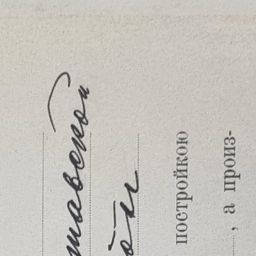 тавской
постройкою
, а произ-